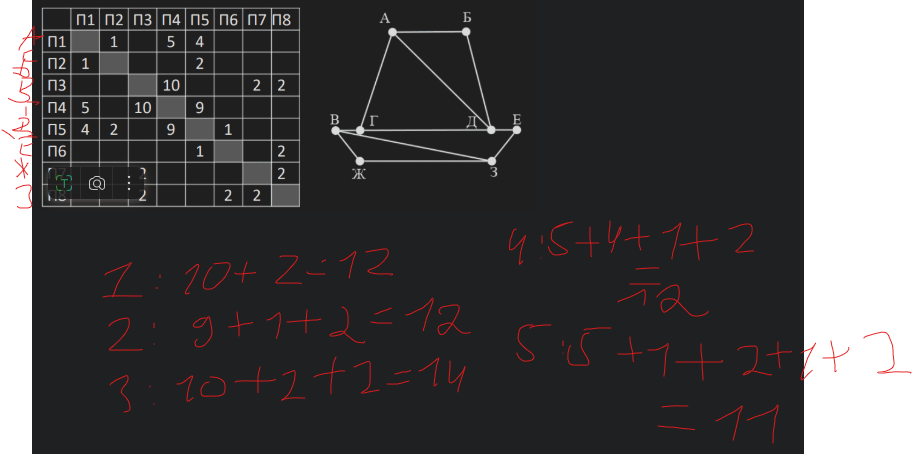 П1 П2 П3 П4 П5 П6 П7 П8
П1 1 5 4
П2 1 2
П3 10 2 2
П4 5 10 9
П5 4 2 9 1
П6 1 2
2 2
2 2 2
А Б
В Г Д Е
Ж З
1: 10+2=12
2: 9+1+2=12
3: 10+2+2=14
4:5+4+1+2
=12
5:5+1+2+1+2
=11